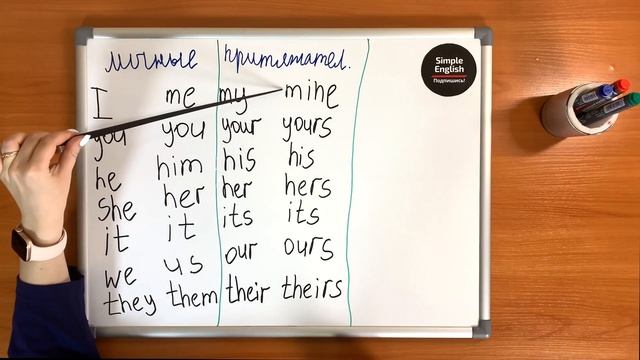 личные притяжател.
I me my mine
you you your yours
he him his his
she her her hers
it it its its
we us our ours
they them their theirs
Simple
English
Подпишись!